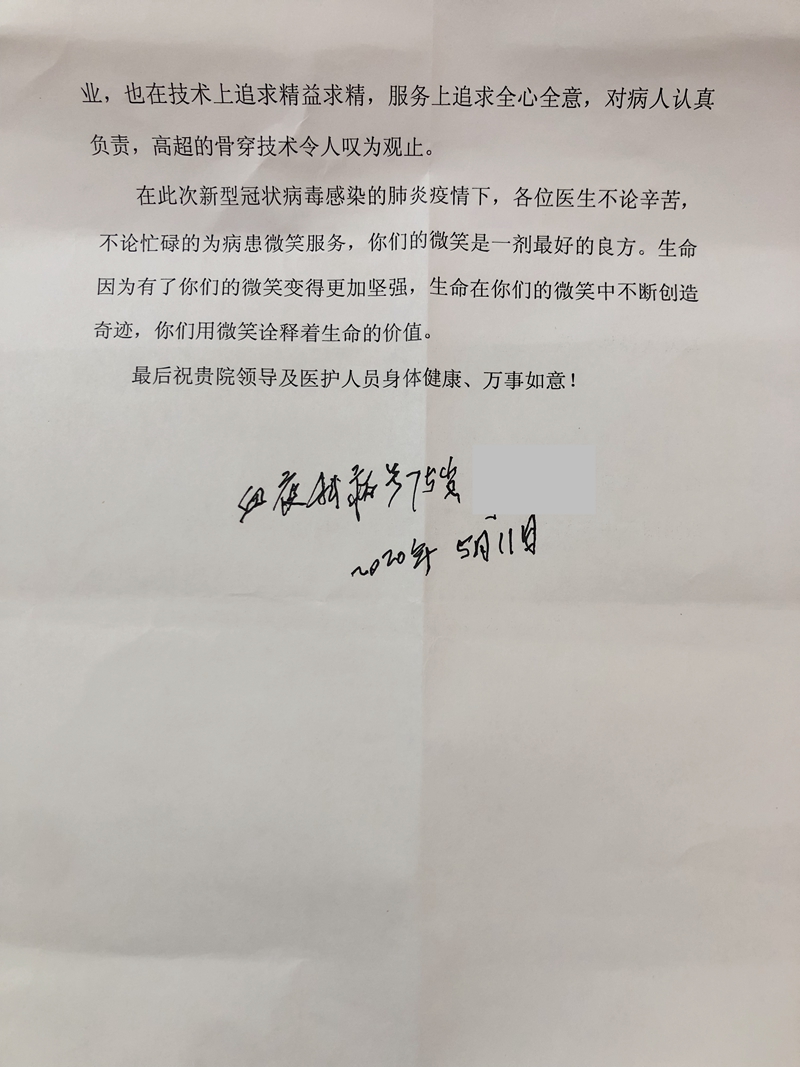 业，也在技术上追求精益求精，服务上追求全心全意，对病人认真
负责，高超的骨穿技术令人叹为观止。
在此次新型冠状病毒感染的肺炎疫情下，各位医生不论辛苦，
不论忙碌的为病患微笑服务，你们的微笑是一剂最好的良方。生命
因为有了你们的微笑变得更加坚强，生命在你们的微笑中不断创造
奇迹，你们用微笑诠释着生命的价值。
最后祝贵院领导及医护人员身体健康、万事如意！
75岁
2020年 5月11日